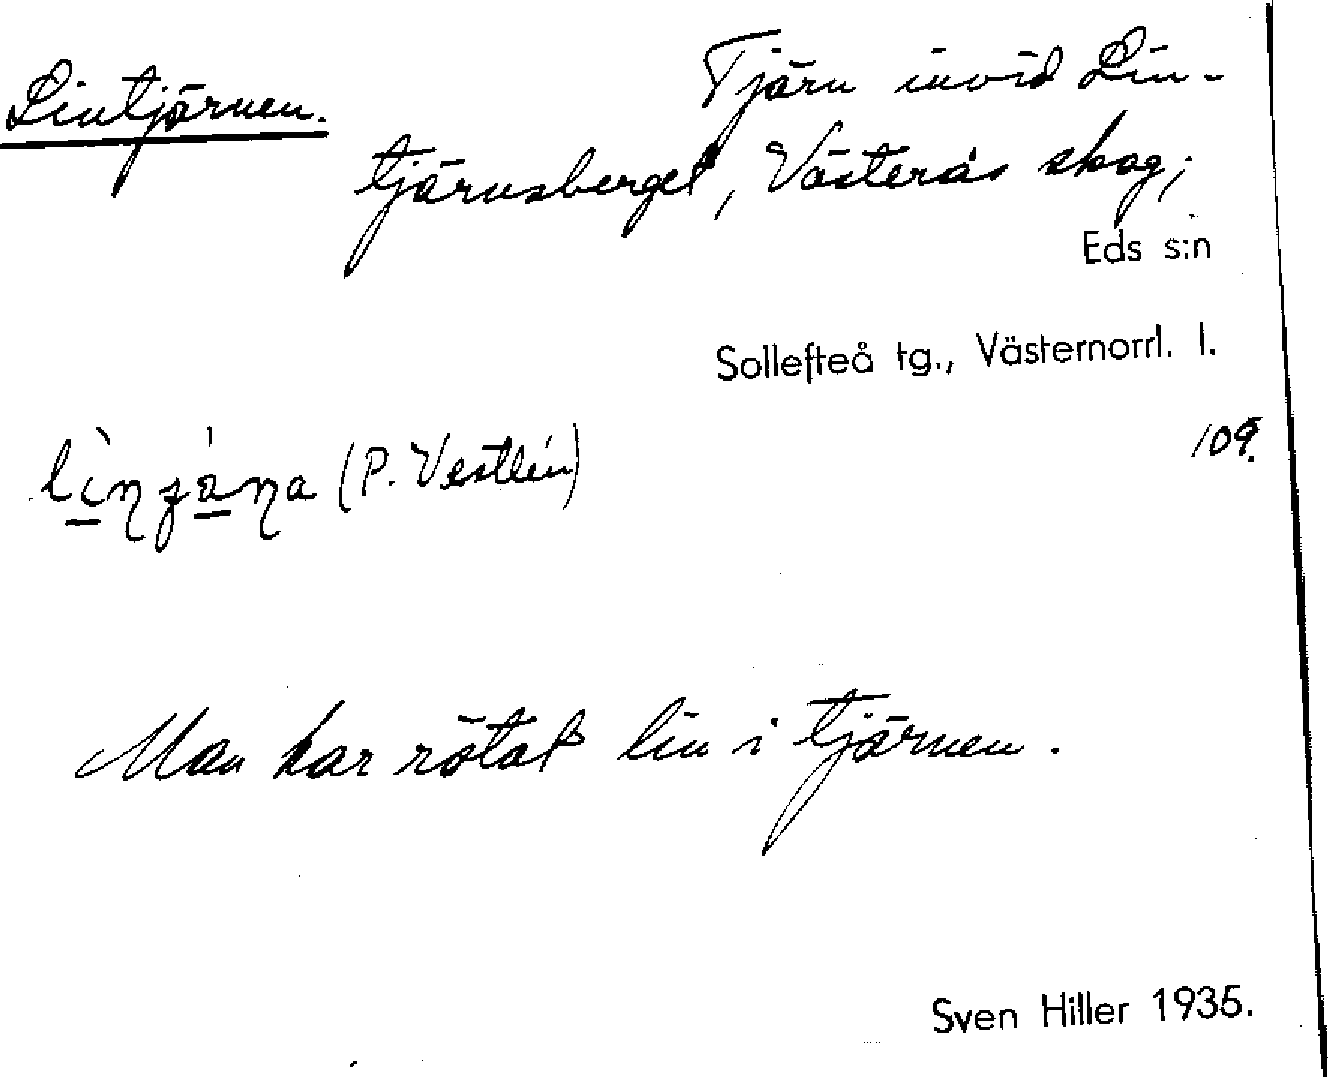 Lintjärnen.
Tjärn invid Lin-
tjärnsberget, Västerås skog;
Eds s:n
Sollefteå tg., Västernorrl. l.
109.
(P. Vestlén)
Man har rötat lin i tjärnen.
Sven Hiller 1935.